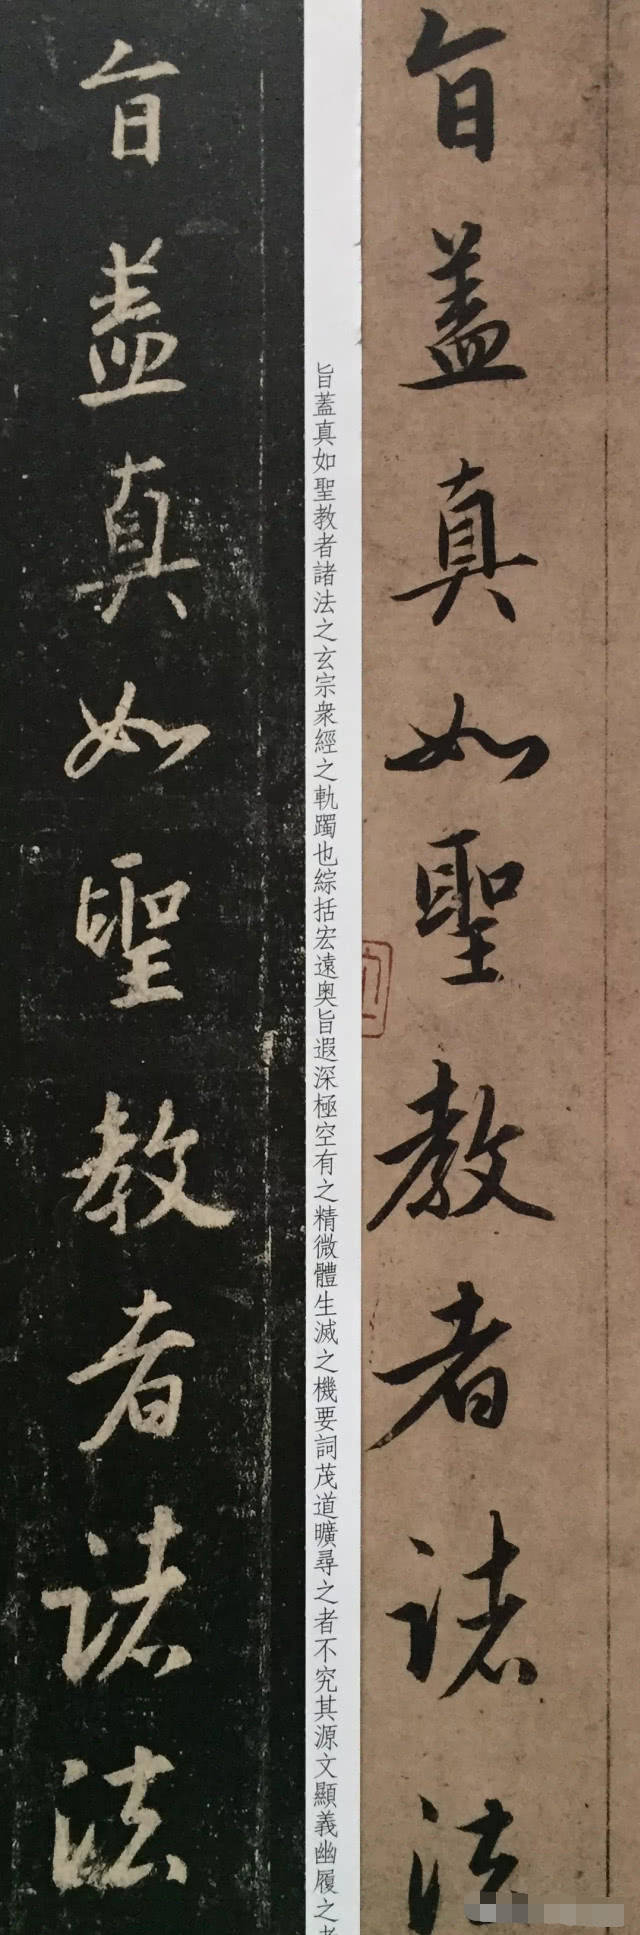 旨蓋真如聖教者諸法
旨蓋真如聖教者諸法之玄宗衆經之軌躅也綜括宏遠奧旨遐深極空有之精微體生滅之機要詞茂道曠尋之者不究其源文顯義幽履之者
旨蓋真如聖教者諸法